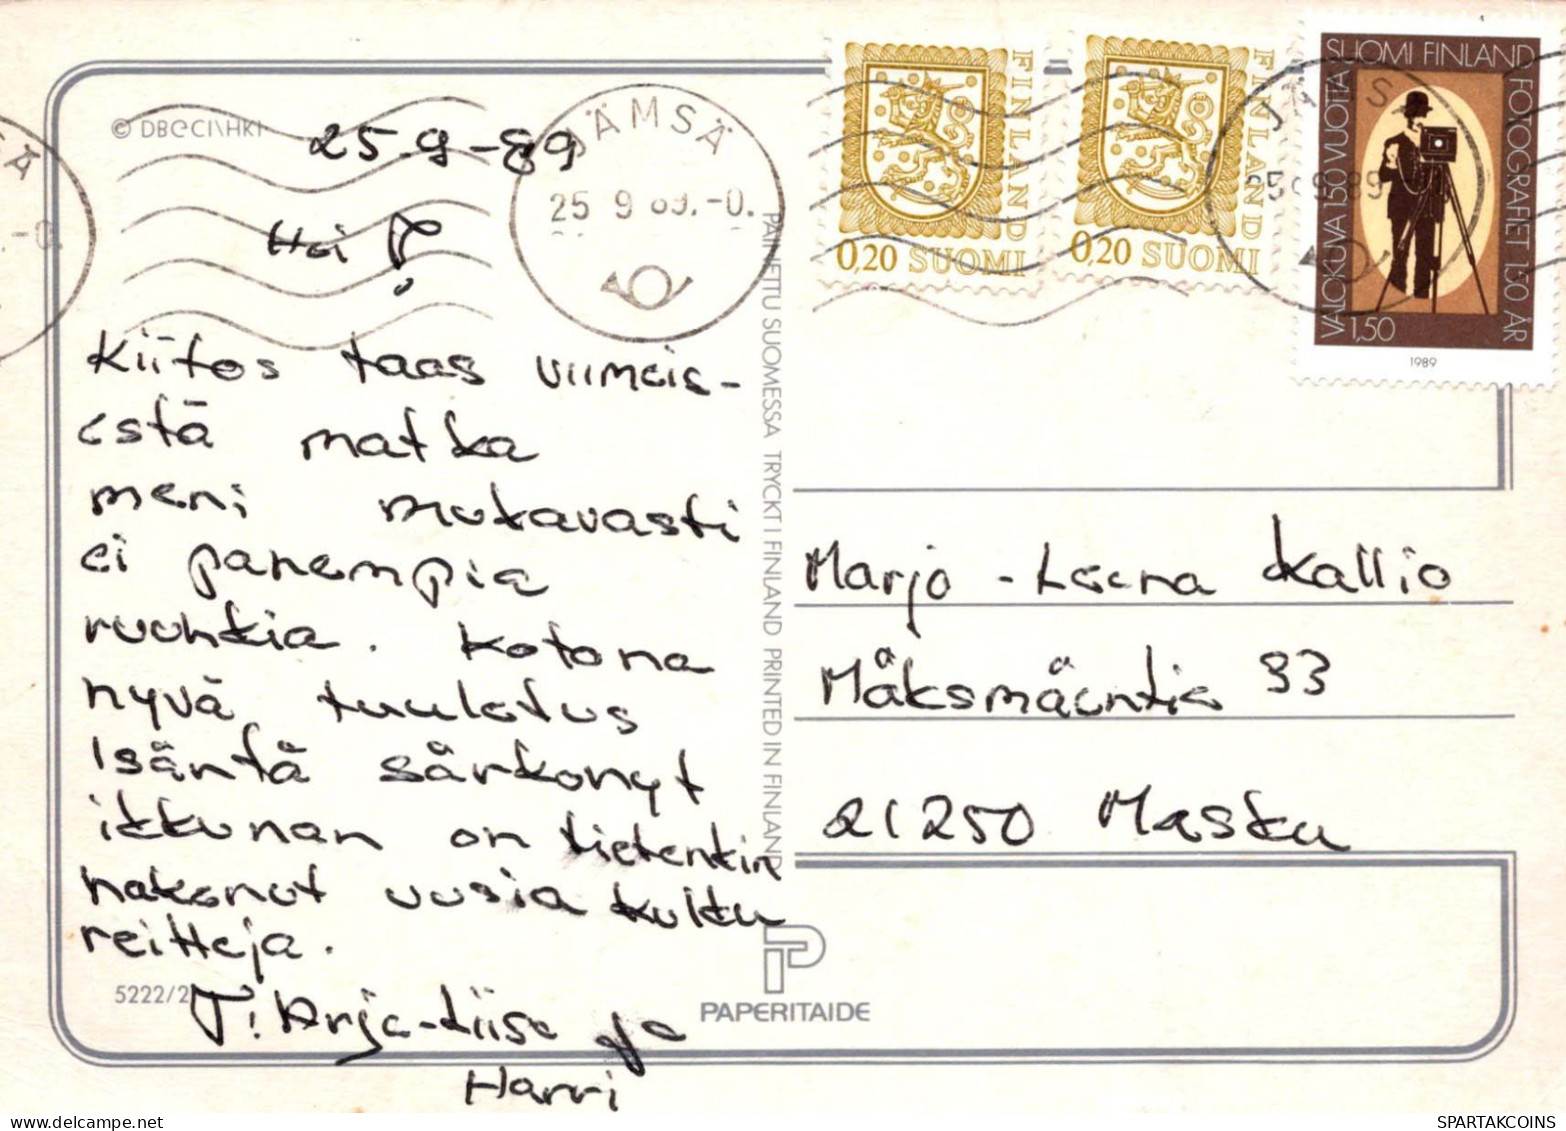 © DB&CI\HKI
25.9-89
JÄMSÄ
25 9 89.-0.
Hei
Kiitos taas viimeis-
estä matka
meni mukavasti
ei parempia
ruuhkia. Kotona
hyvä tuuletus
Isäntä särkenyt
ikkunan on tietenkin
hakenut uusia kukka
reittejä.
5222/2
T: Arja-Liisa ja
Harri
PAINETTU SUOMESSA TRYCKT I FINLAND PRINTED IN FINLAND
PAPERITAIDE
FINLAND
0,20 SUOMI
FINLAND
0,20 SUOMI
SUOMI FINLAND
VALOKUVA 150 VUOTTA
FOTOGRAFIET 150 ÅR
1,50
1989
Marjo-Leena Kallio
Mäksmäentie 33
21250 Masku
SPARTAKCOINS